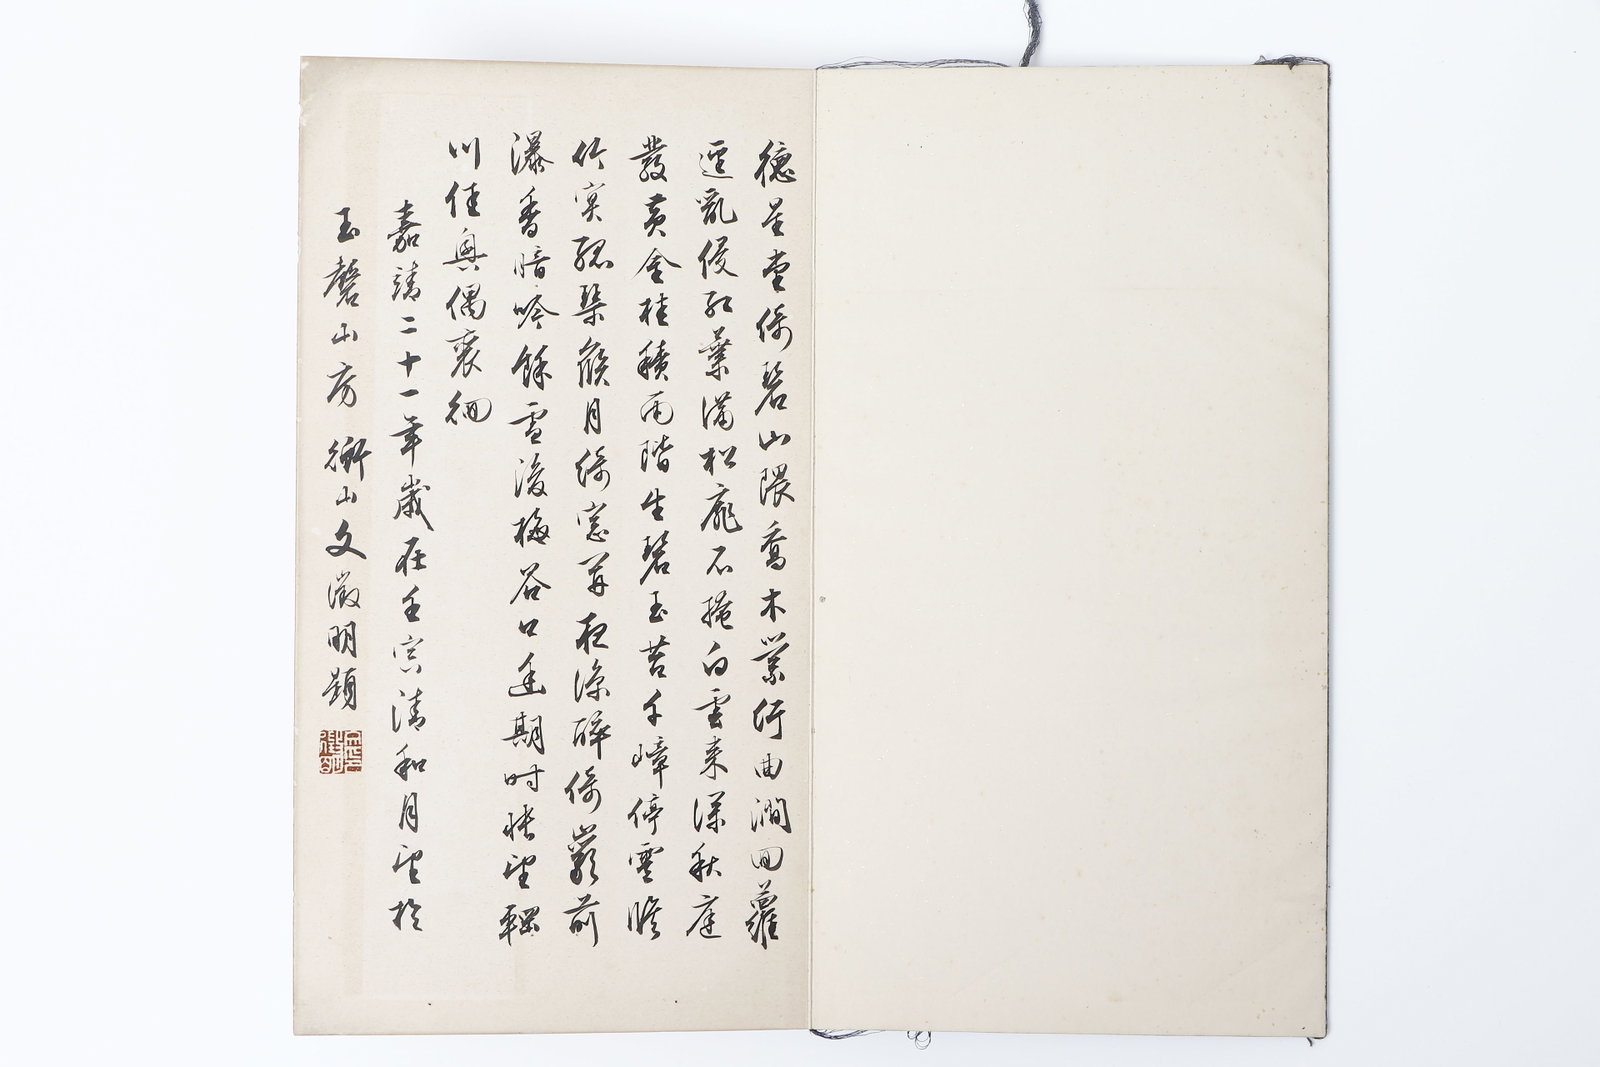 德星堂倚碧山隈喬木叢何曲澗回蘿
逕亂侵紅葉滿松扉不掩白雲來深秋庭
發黃金桂積雨階生碧玉苔千嶂停雲瞻
竹寞琴候月倚窗再夜涼醉倚巖前
瀑香暗吟餘雪後梅谷口逢期時悵望輞
川佳興偶裴徊
嘉靖二十一年歲在壬寅清和月望於
玉磬山房 衡山文徵明題